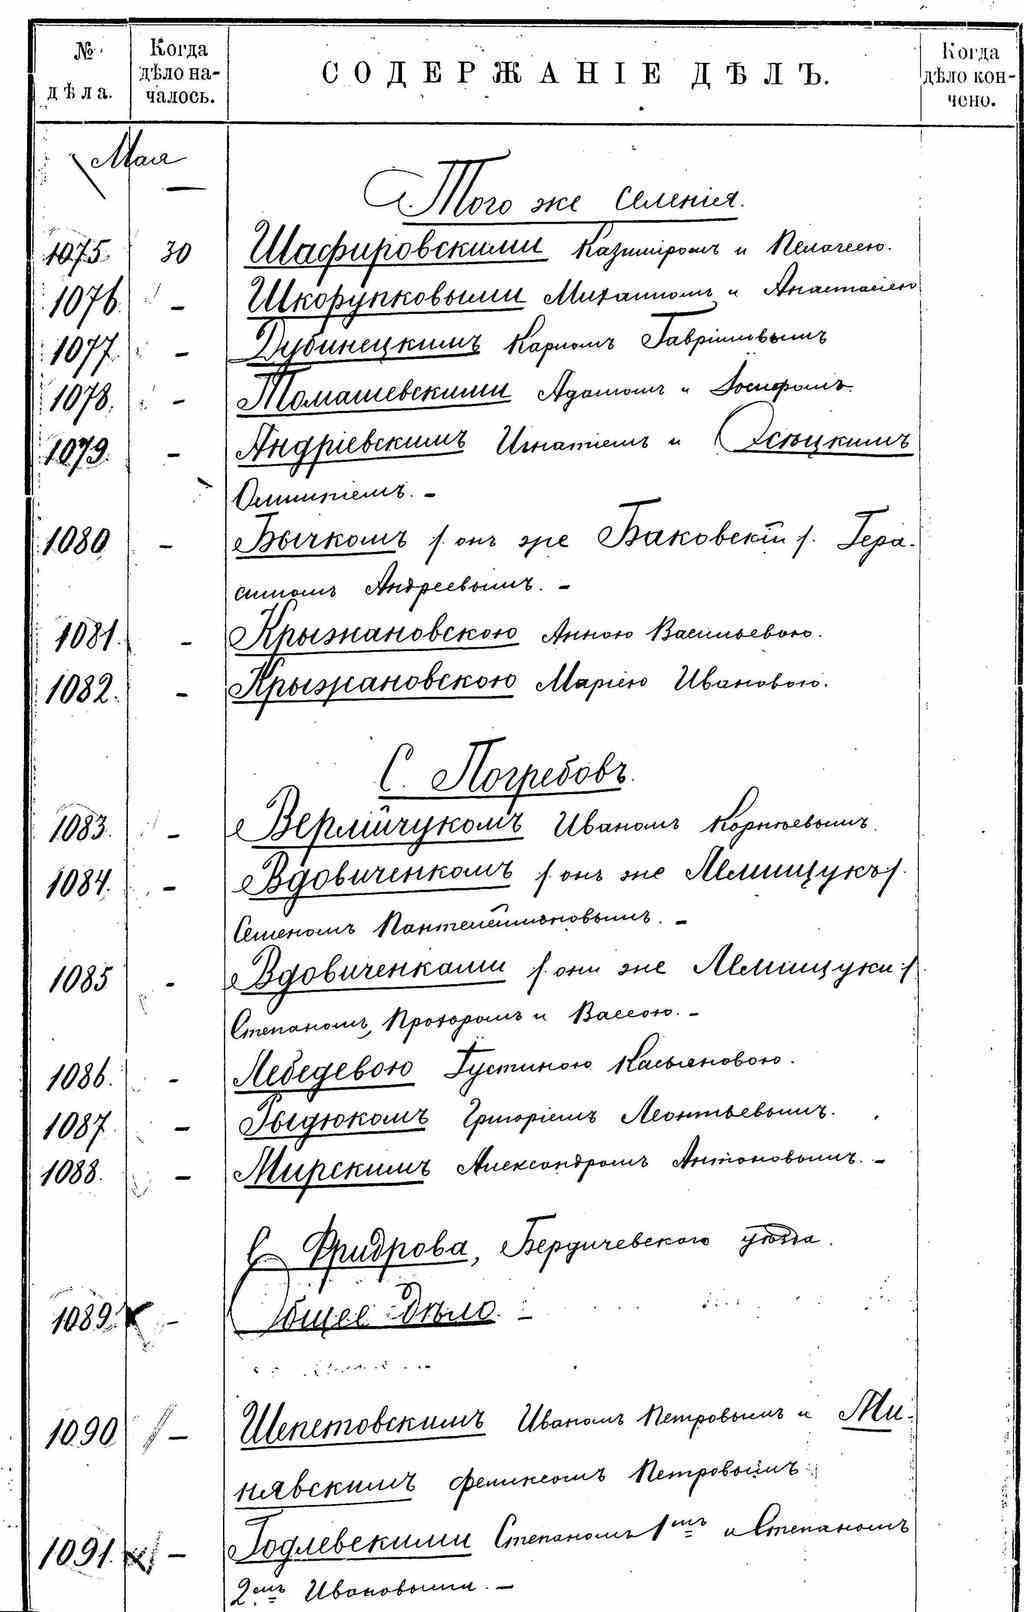 № дѣла. Когда дѣло началось. СОДЕРЖАНІЕ ДѢЛЪ. Когда дѣло кончено.
Мая
Того же селенія.
1075. 30 Шафировскими Казиміромъ и Пелагеею.
1076. - Шкорупковыми Михаиломъ и Анастасіею
1077. - Дубинецкимъ Карпомъ Гавріиловымъ
1078. - Томашевскими Адамомъ и Іосифомъ.
1079. - Андріевскимъ Игнатіемъ и Осѣцкимъ
Олимпіемъ. -
1080 - Бычкомъ /. онъ же Баковскій /. Гера-
симомъ Андреевымъ. -
1081. - Крыжановскою Анною Васильевою.
1082. - Крыжановскою Маріею Ивановою.
С. Погребовъ.
1083. - Верлійчукомъ Иваномъ Корнѣевымъ.
1084. - Вдовиченкомъ /. онъ же Лемищукъ /.
Семеномъ Пантелеймоновымъ. -
1085 - Вдовиченками /. они же Лемищуки /.
Степаномъ, Прохоромъ и Вассою. -
1086. - Лебедевою Густиною Касьяновою.
1087. - Гыдюкомъ Григоріемъ Леонтьевымъ.
1088. - Мирскимъ Александромъ Антоновымъ. -
С. Фридрова, Бердичевского уѣзда.
1089. - Общее дѣло. -
1090 - Шепетовскимъ Иваномъ Петровымъ и Ми-
нявскимъ Феликсомъ Петровымъ
1091. - Годлевскими Степаномъ 1мъ и Степаномъ
2мъ Ивановыми. -